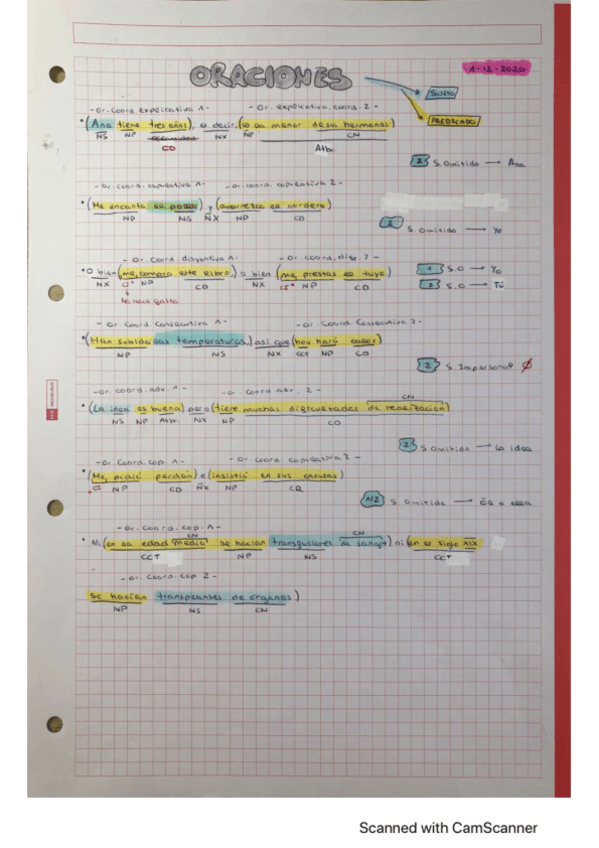 ORACIONES
1-12-2020
SUJETO
PREDICADO
-Or. Coord. explicativa 1- -Or. explicativa, coord. 2-
•(Ana tiene tres años); es decir, (es la menor de sus hermanos)
NS NP NX NP CN
CD Atbr.
2 S. Omitido → Ana
-Or. Coord. copulativa 1- -Or. coord. copulativa 2-
•(Me encanta el pollo) y (aborrezco el cordero)
NP NS NX NP CD
2 S. Omitido → Yo
-Or. Coord. disyuntiva 1- -Or. coord. disy. 2-
•O bien (me compro este libro,) o bien (me prestas el tuyo)
NX CI* NP CD NX CI* NP CD
No hace falta
1 S.O → Yo
2 S.O → Tú
-Or. Coord. Consecutiva 1- -Or Coord Consecutiva 2-
•(Han subido las temperaturas,) así que (hoy hará calor)
NP NS NX CCT NP CD
2 S. Impersonal Ø
-Or. coord. adv. 1- -Or. coord adv. 2-
•(La idea es buena) pero (tiene muchas dificultades de realización)
NS NP Atbr. NX NP CD
CN
2 S Omitido → La idea
-Or. Coord. cop. 1- -Or. coord. copulativa 2-
•(Me pidió perdón) e (insistió en sus excusas)
CI NP CD NX NP CR
1/2 S. Omitido → Él o ella
-Or. Coord. cop. 1-
• Ni (en la edad media se hacían transfusiones de sangre) ni (en el siglo XIX
CN CN
CCT NP NS CCT
-Or. Coord. cop 2-
se hacían transplantes de órganos)
NP NS CN
Scanned with CamScanner